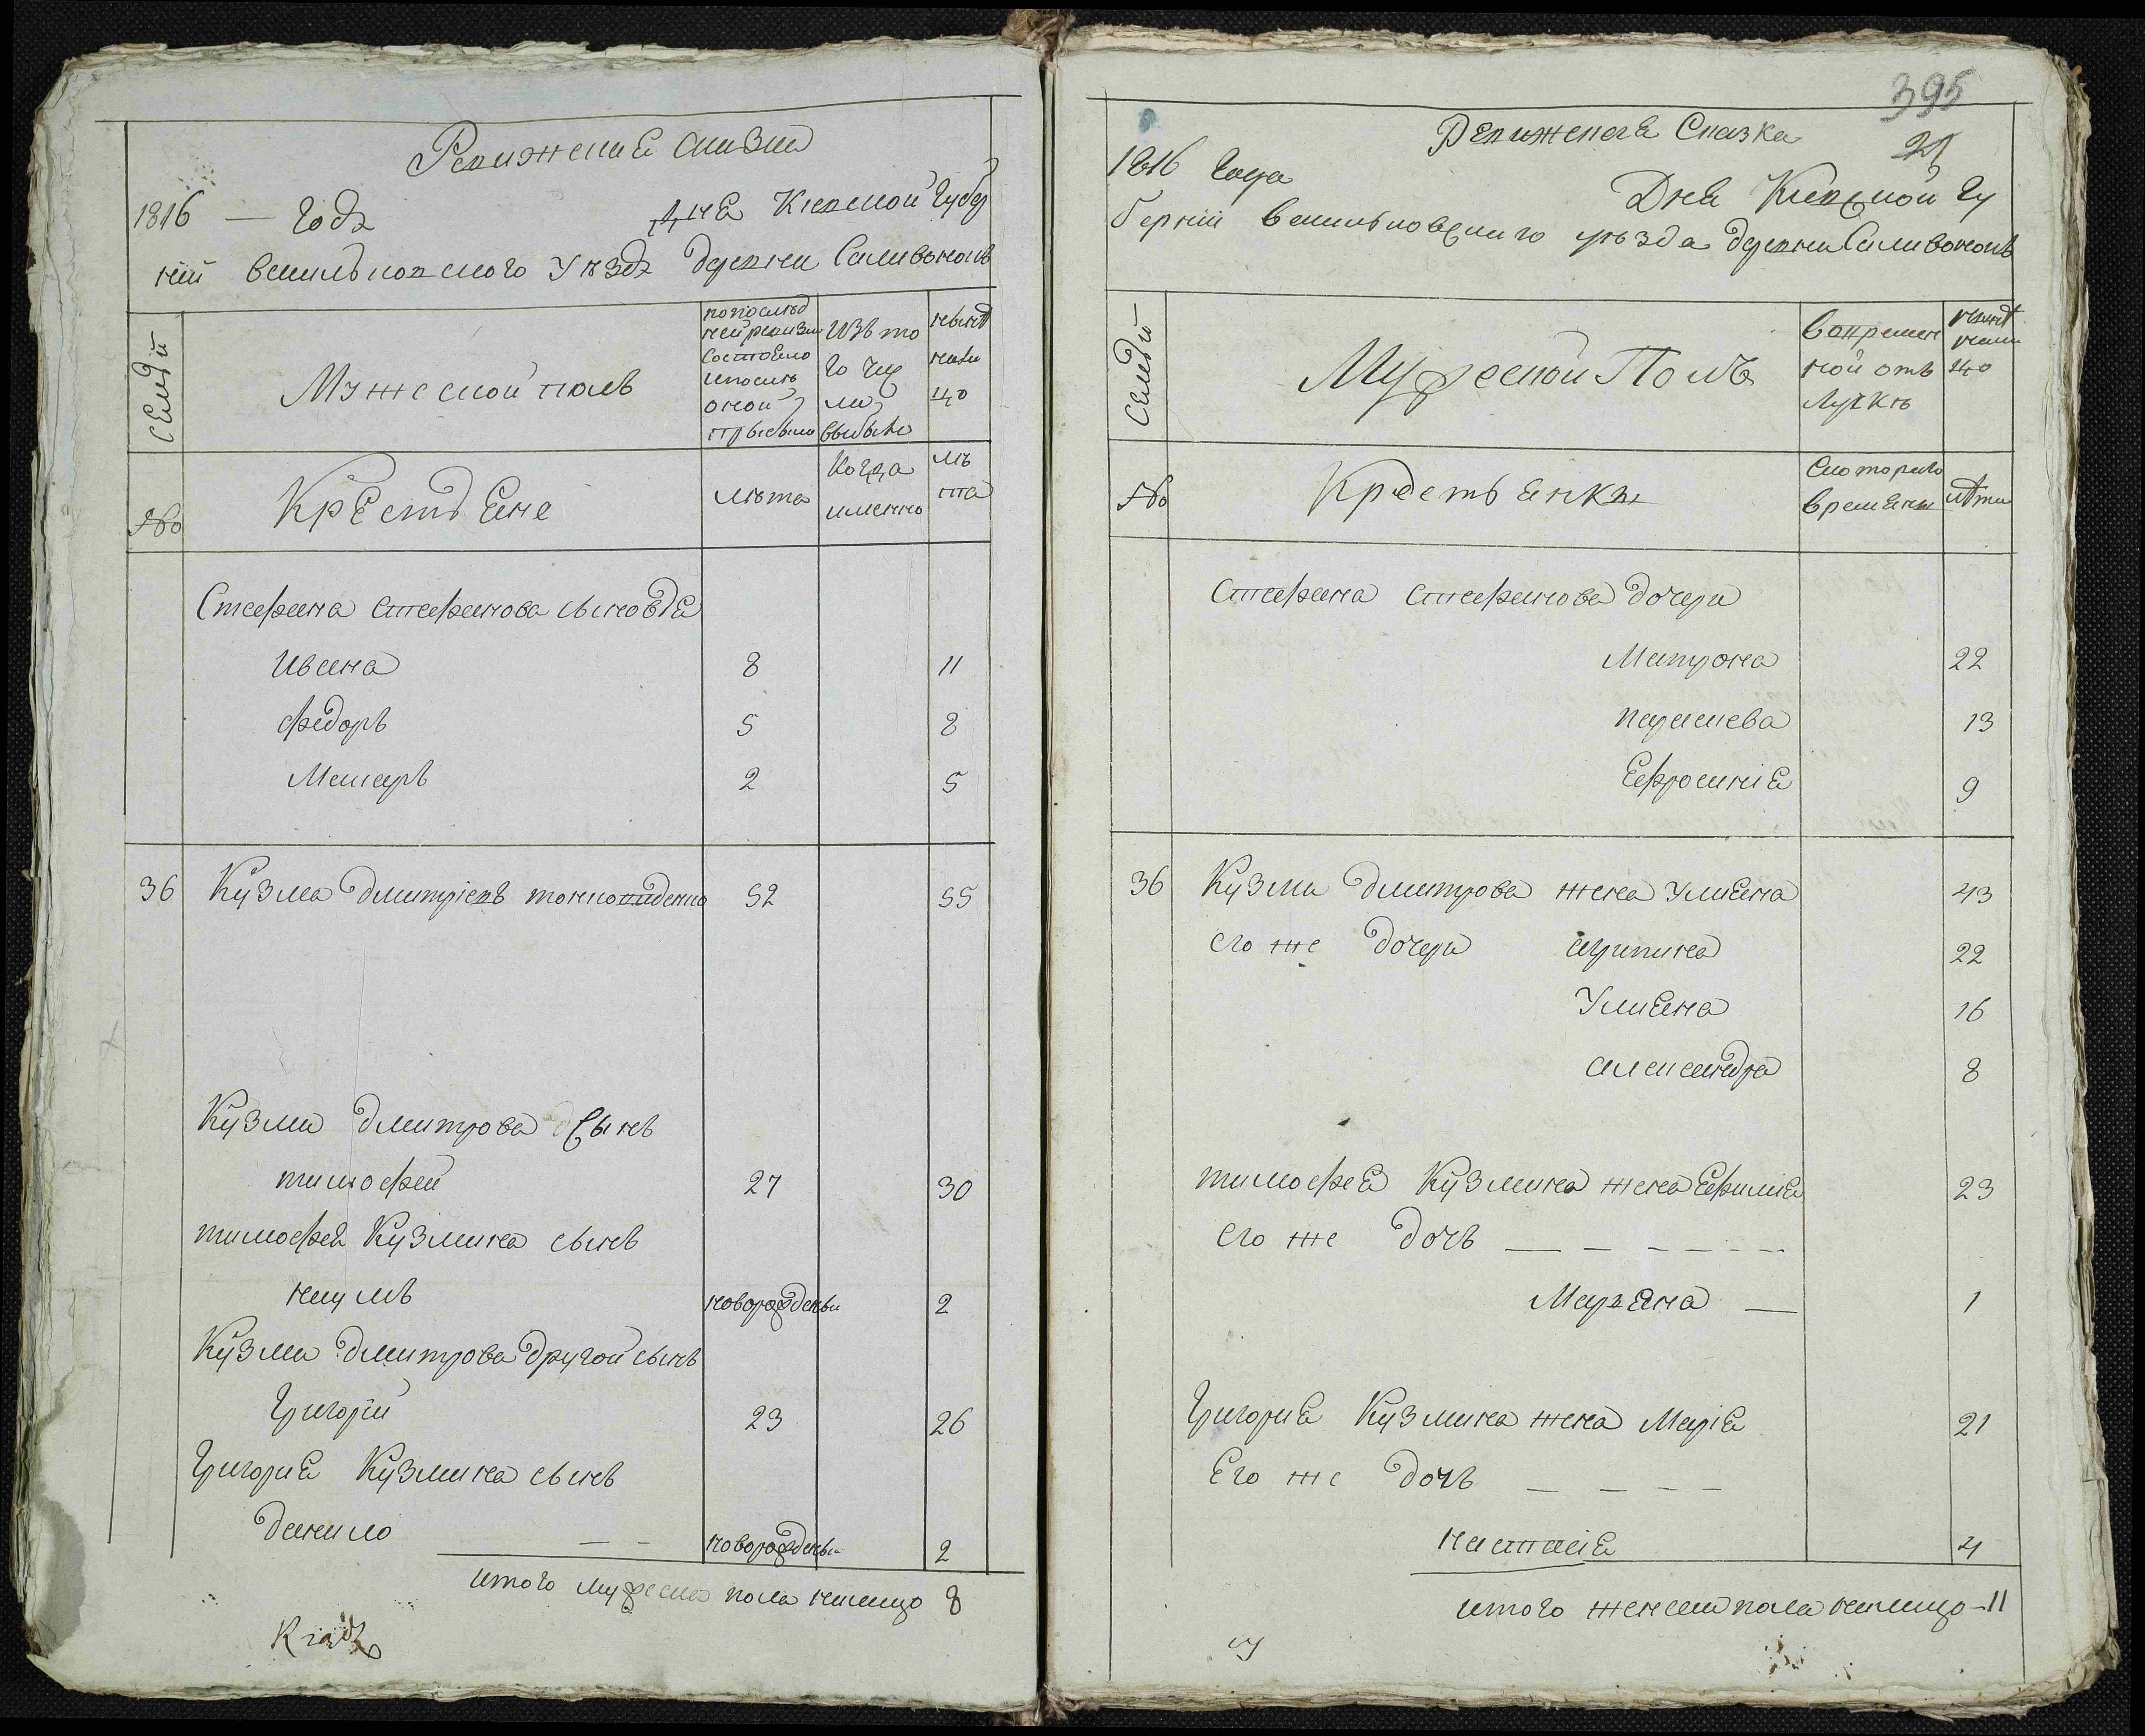 Ревижские скизки
1816 — Годъ дня Киевской Губер
нии василковского Уѣздъ деревни Саливонокъ
Семьи
Мужеской полъ
попослѣд
ней ревизии
Состояло
ипослѣ
оной
прыбыло
Изъ то
го чис
ла
выбыло
нынѣ
нали
цо
№
Крестьяне
лѣта
Когда
именно
лѣ
та
Стефана Стефанова сыновья
Ивана 8 11
федоръ 5 8
Макаръ 2 5
36 Кузма Дмитріевъ 52 55
Кузми Дмитрова Сынъ
тимофей 27 30
тимофея Кузмина сынъ
наумъ новорожденый 2
Кузми Дмитрова другой сынъ
Григорій 23 26
Григория Кузмина сынъ
Данило — — новорожденый 2
Итого мужеска пола налицо 8
395
21
Ревижская Сказка
1816 Года Дня Киевской Гу
берніи василковскиго уѣзда деревни Саливонокъ
Семьи
Мужеской Полъ
вовремен
ной отъ
лучкѣ
нынѣ
нали
цо
№
Крестьянки
Скоториго
времяны
лѣти
Стефана Стефанова дочери
Матрона 22
параскева 13
Ефросиния 9
36 Кузми Дмитрова жена Улияна 43
его же дочери агрипина 22
Улияна 16
александра 8
тимофея Кузмина жена Ефимия 23
его же дочъ — — — — — —
Марьяна — 1
Григория Кузмина жена Марія 21
Его же дочъ — — — —
настасія 4
итого женска пола налицо - 11